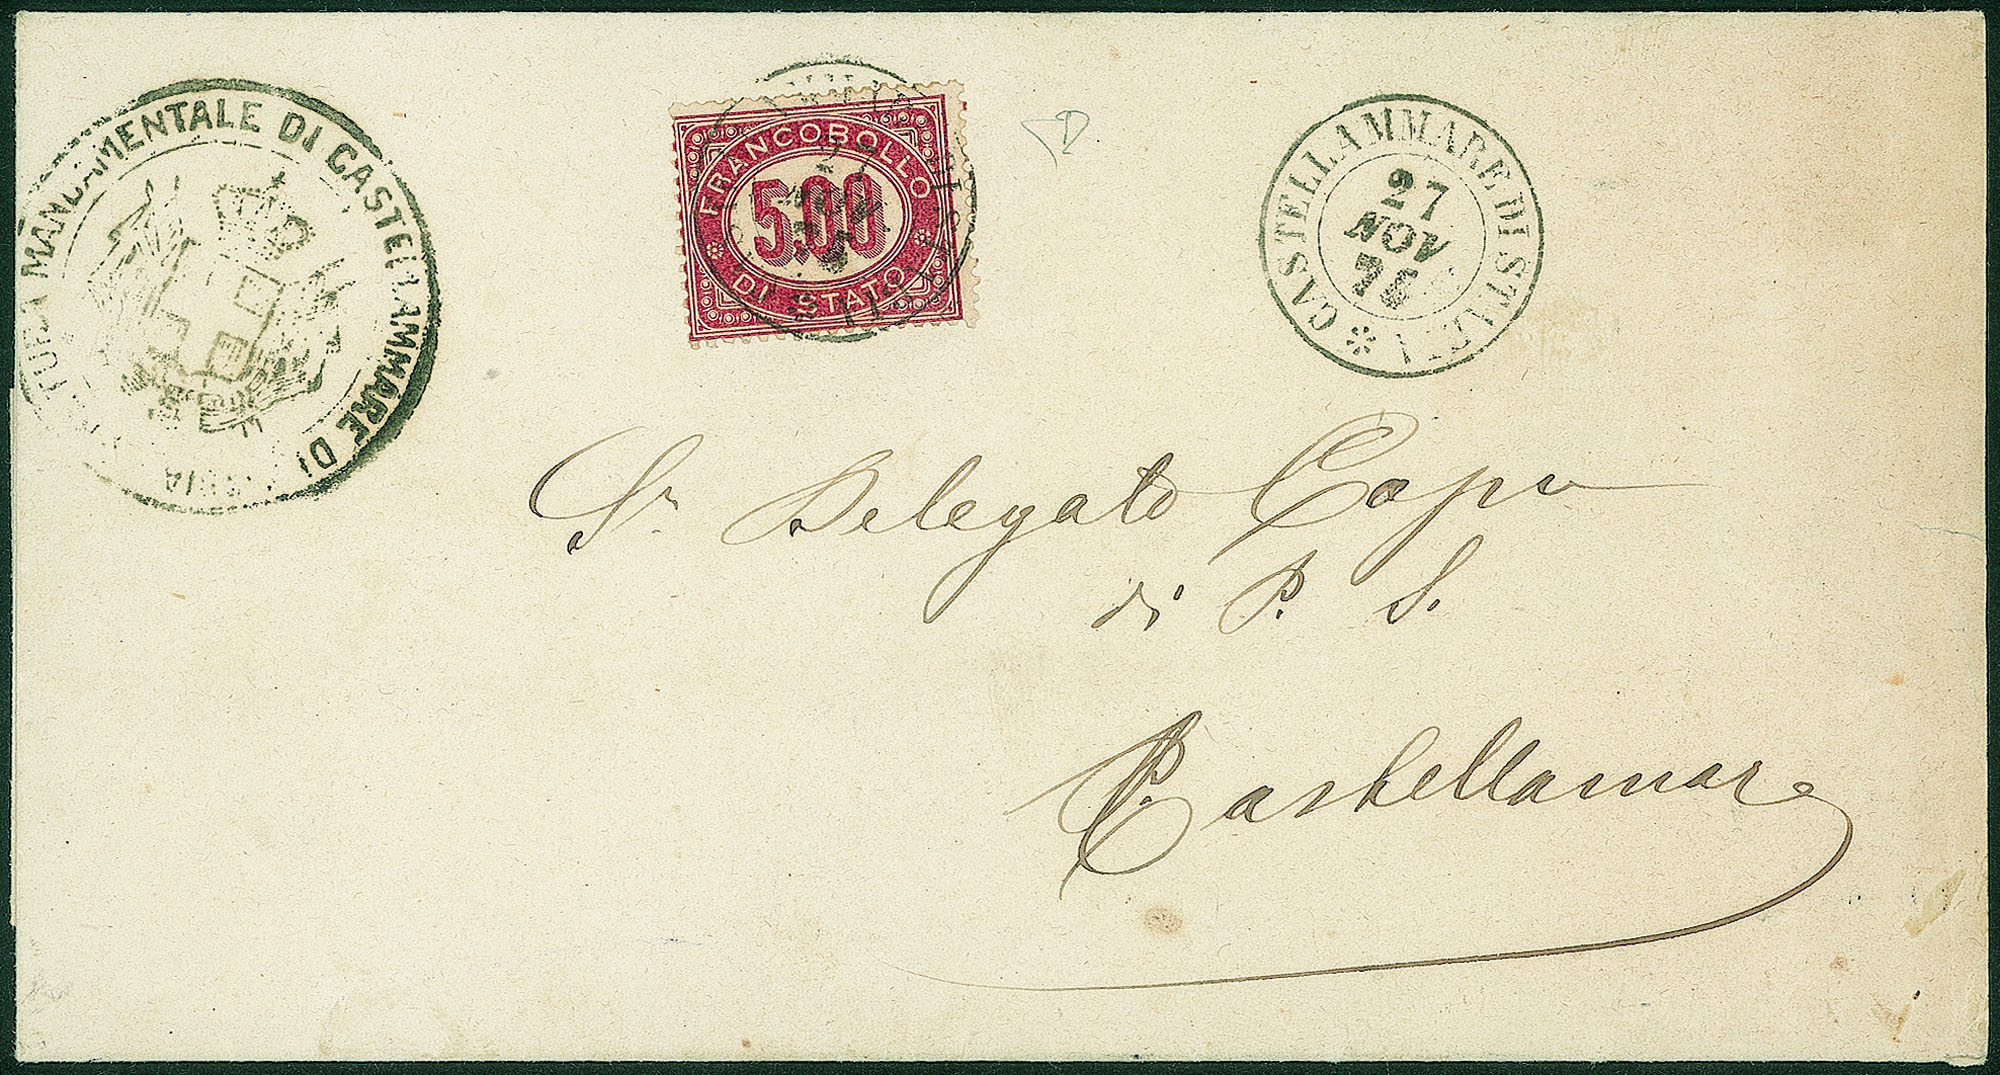 TURA MANDAMENTALE DI CASTELLAMMARE DI
FRANCOBOLLO
5.00
DI STATO
27
NOV
CASTELLAMMARE DI STABIA
27
NOV
75
Sr. Delegato Capo
di P. S.
Castellamare